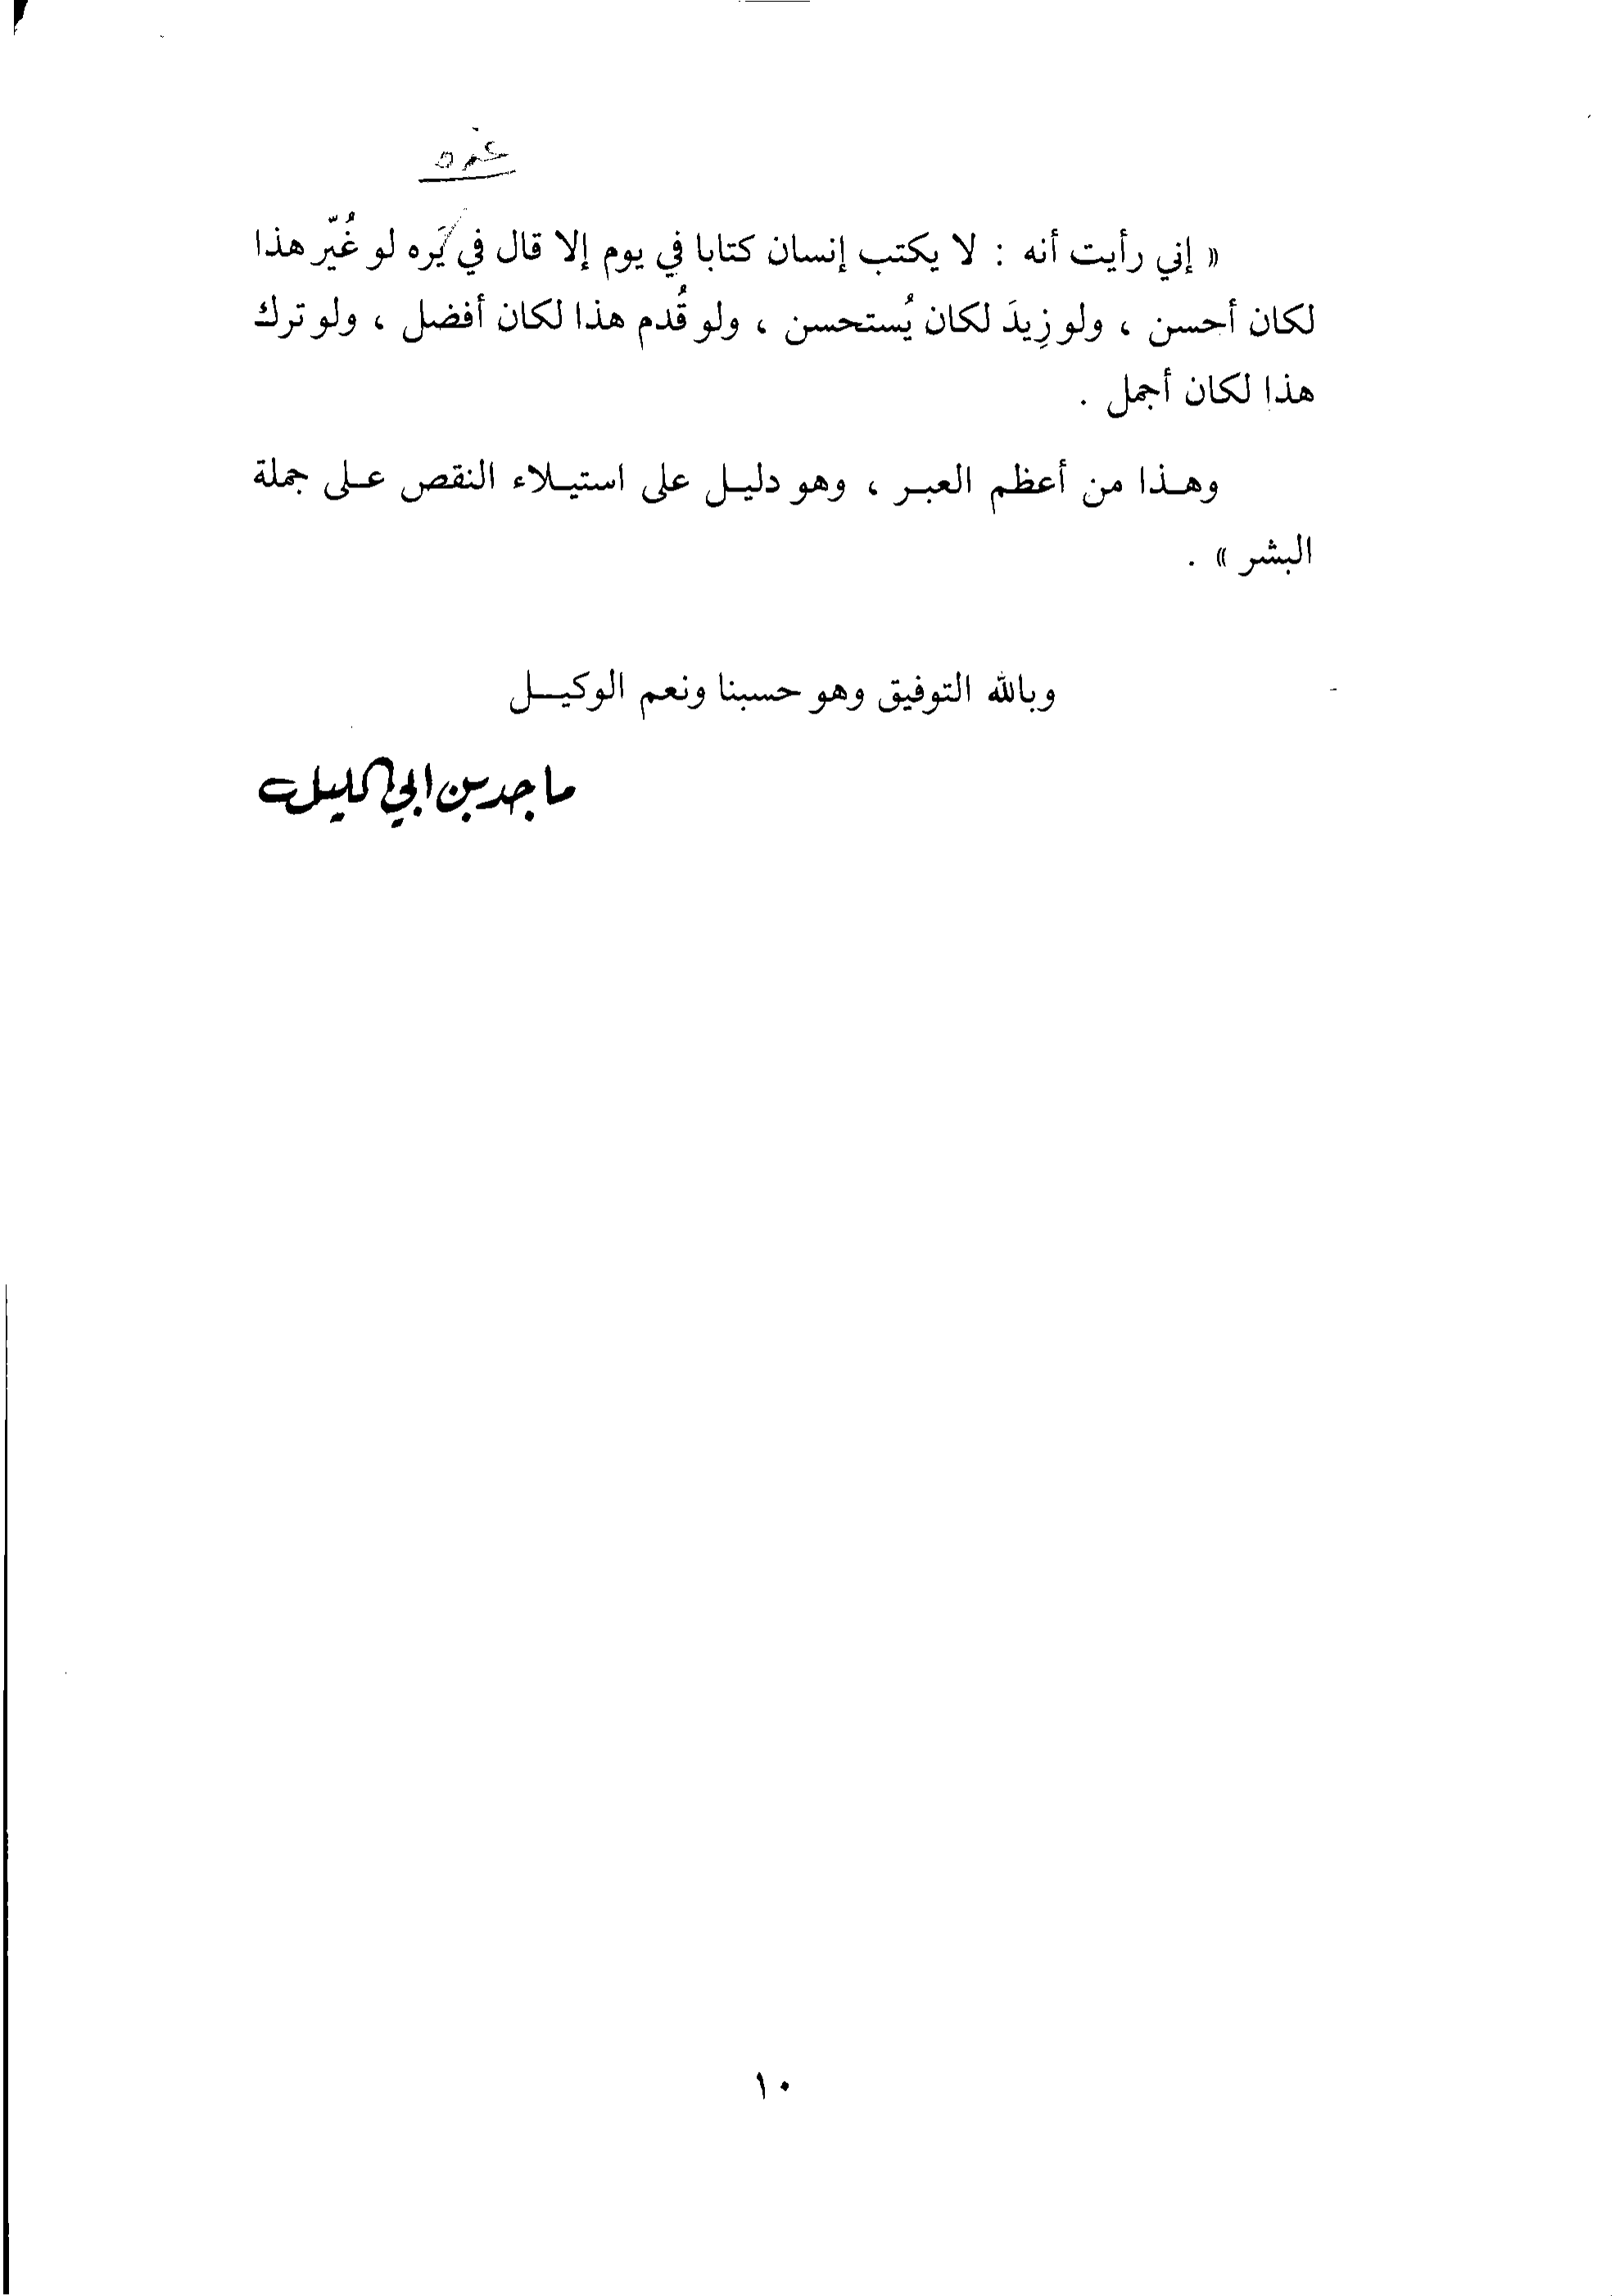 غره
« إني رأيت أنه : لا يكتب إنسان كتابا في يوم إلا قال في يَره لو غُيّر هذا
لكان أحسن ، ولو زِيدَ لكان يُستحسن ، ولو قُدم هذا لكان أفضل ، ولو ترك
هذا لكان أجمل .
وهـذا من أعظم العبـر ، وهو دليـل على استيـلاء النقص عـلى جملة
البشر » .
وبالله التوفيق وهو حسبنا ونعم الوكيـل
ماجد بن ابي
١٠